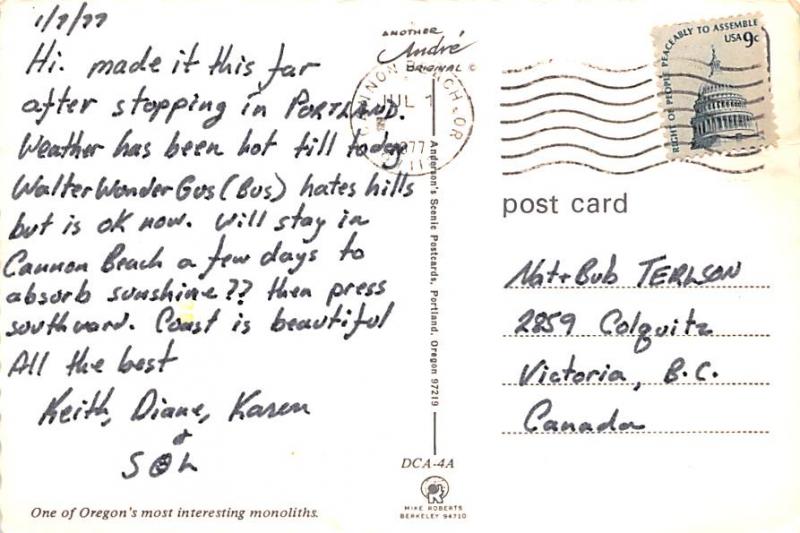 1/7/77
Hi. made it this far
after stopping in PORTLAND.
Weather has been hot till today
Walter Wonder Gus (Bus) hates hills
but is ok now. Will stay in
Cannon Beach a few days to
absorb sunshine?? then press
southward. Coast is beautiful
All the best
Keith, Diane, Karen
&
SOL
One of Oregon's most interesting monoliths.
ANOTHER
André
ORIGINAL ©
CANNON BEACH, OR
JUL 1
1977
Anderson's Scenic Postcards, Portland, Oregon 97219
DCA-4A
MIKE ROBERTS
BERKELEY 94710
RIGHT OF PEOPLE PEACEABLY TO ASSEMBLE
USA 9c
post card
Nat + Bub TERLSON
2859 Colquitz
Victoria, B.C.
Canada